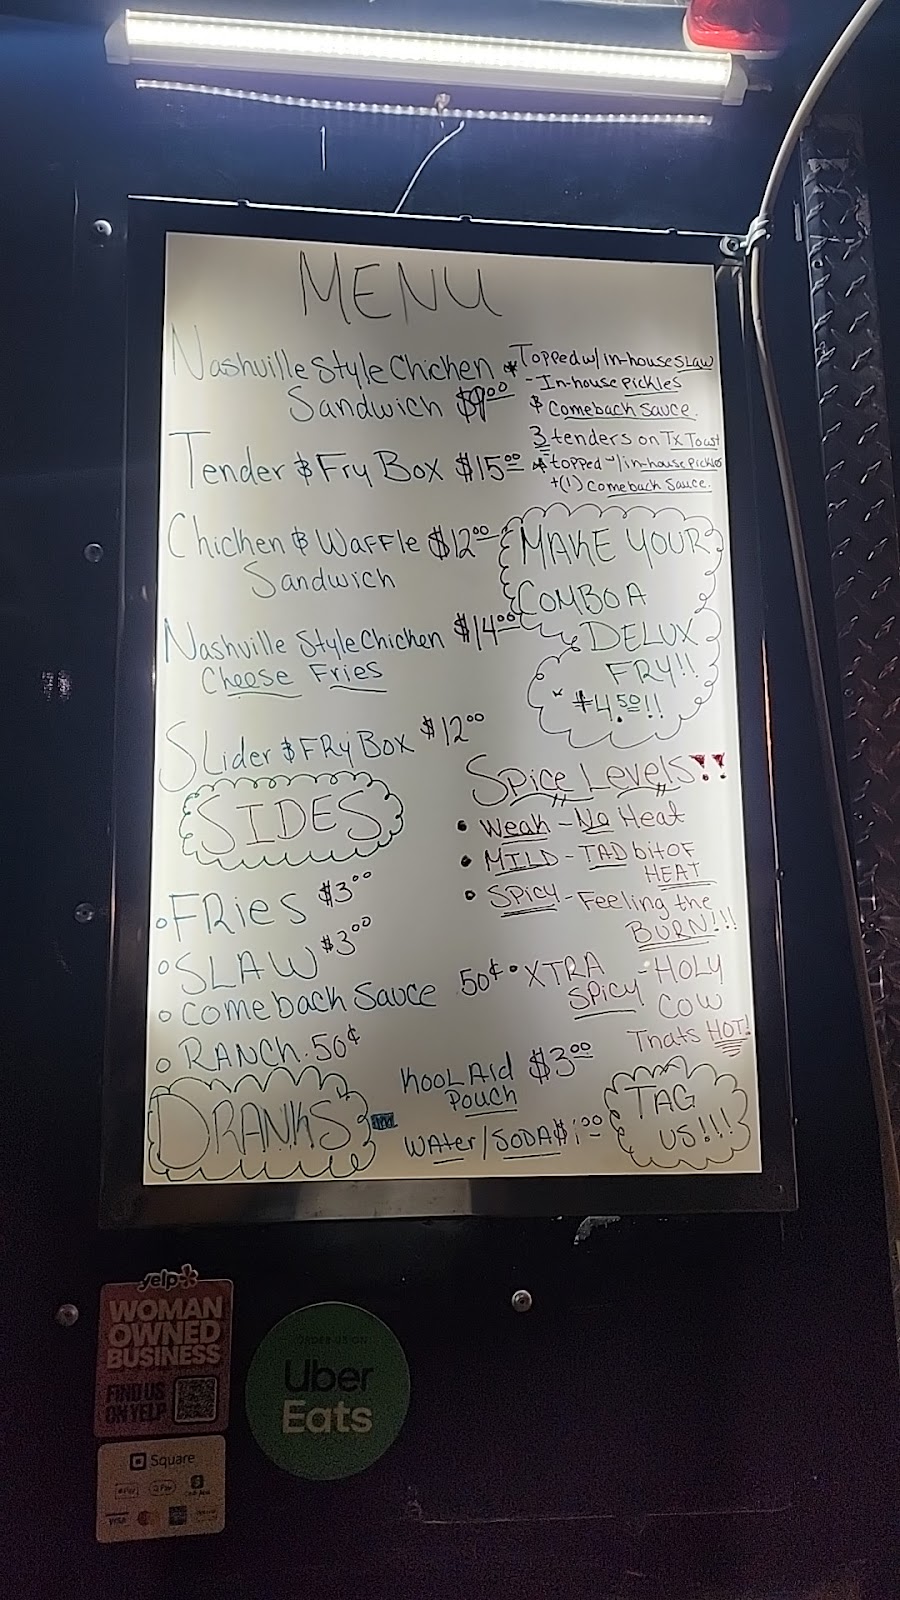 MENU
Nashville Style Chicken
Sandwich $9.00
* Topped w/ in-house slaw
- In-house pickles
& Comeback Sauce.
Tender & Fry Box $15.00
3 tenders on Tx Toast
* topped w/ in-house pickles
+(1) Comeback Sauce.
Chicken & Waffle $12.00
Sandwich
MAKE YOUR
COMBO A
DELUX
FRY!!
$4.50!!
Nashville Style Chicken $14.00
Cheese Fries
Slider & FRy Box $12.00
SIDES
FRies $3.00
SLAW $3.00
Comeback Sauce 50¢
RANCH. 50¢
Spice Levels!!
• Weak - No Heat
• MILD - TAD bit OF
HEAT
• Spicy - Feeling the
BURN!!!
• XTRA - HOLY
SPicy COW
Thats HOT!
"DRANKS"
KOOLAid $3.00
Pouch
WAter/SODA $1.00
TAG
US!!!
yelp
WOMAN
OWNED
BUSINESS
FIND US
ON YELP
ORDER US ON
Uber
Eats
Square
Pay
G Pay
Cash App
VISA